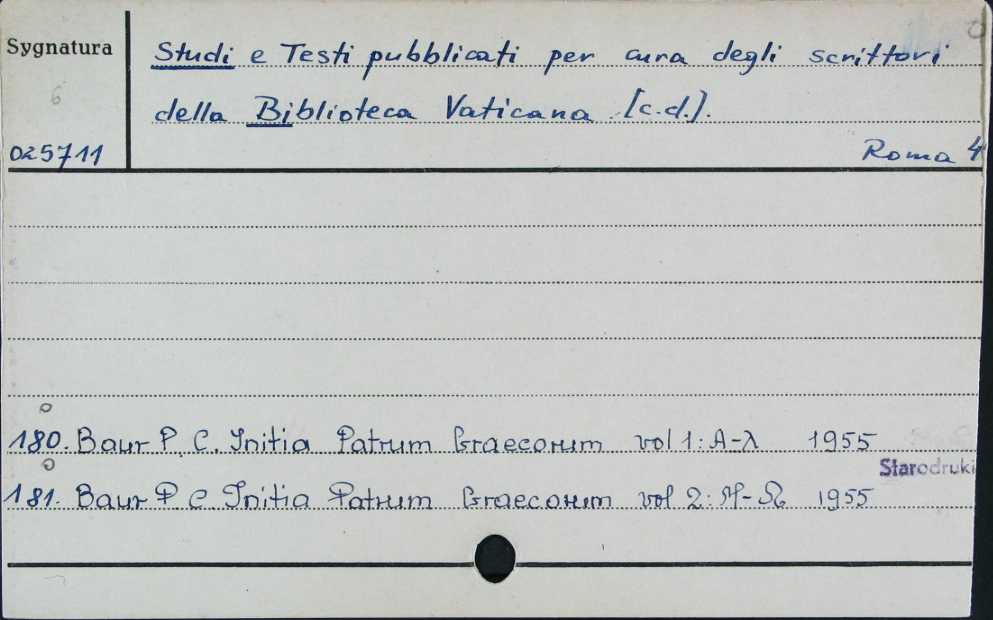 Sygnatura
Studi e Testi pubblicati per cura degli scrittori
6
della Biblioteca Vaticana [c.d.].
025711
Roma 4
180. Baur P. C. Initia Patrum Graecorum vol 1: A-λ 1955
Starodruki
181. Baur P. C. Initia Patrum Graecorum vol 2: M-Ω 1955